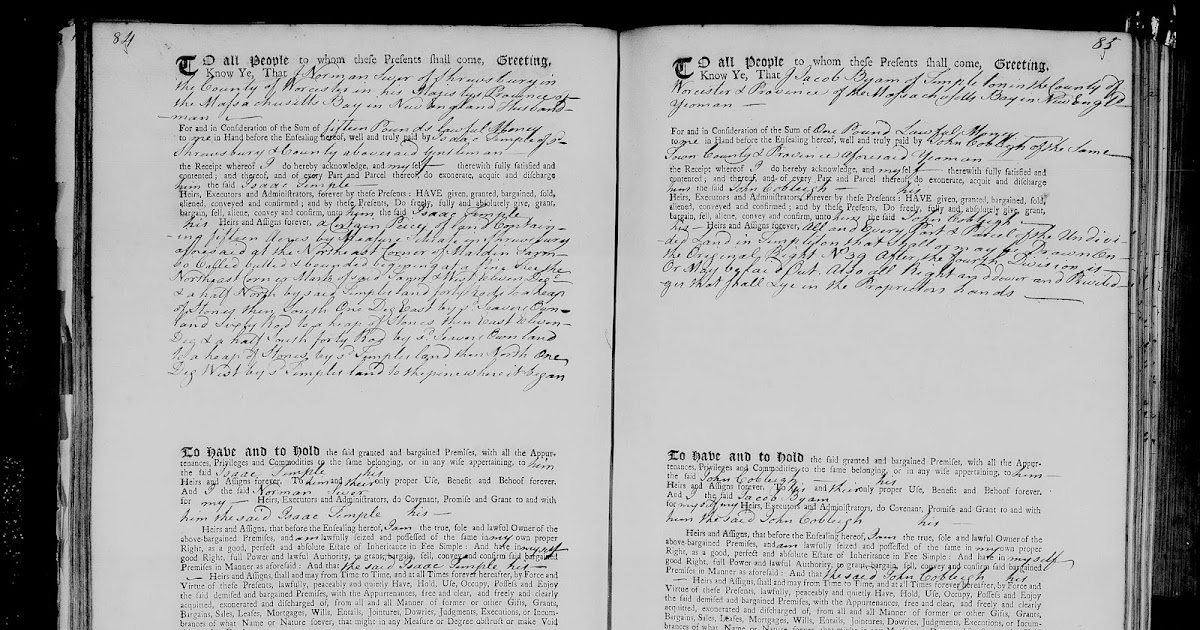 84
TO all People to whom these Presents shall come, Greeting,
Know Ye, That I Norman Sever of Shrewsbury in
the County of Worcester in his Majestys Province of
the Massachusetts Bay in New England Husband-
man
For and in Consideration of the Sum of fifteen Pounds lawful Money
to me in Hand before the Ensealing hereof, well and truly paid by Isaac Temple of sd
Shrewsbury & County abovesaid Gentleman
the Receipt whereof I do hereby acknowledge, and myself therewith fully satisfied and
contented; and thereof, and of every Part and Parcel thereof, do exonerate, acquit and discharge
him the said Isaac Temple
Heirs, Executors and Administrators, forever by these Presents: HAVE given, granted, bargained, sold,
aliened, conveyed and confirmed; and by these Presents, Do freely, fully and absolutely give, grant,
bargain, sell, aliene, convey and confirm, unto him the said Isaac Temple
his Heirs and Assigns forever, a Certain Peice of land Contain-
ing fifteen Acres by Measure Scituate in Shrewsbury
afforesaid at the Northeast Corner of Malden Farm
so Called butted & bounded beginning at a Pine tree the
Northeast Corner Mark of said Farm then West eleven Deg
& a half North by said Temples land forty Rods to a heap
of Stones then South One Deg East by sd Severs Own
land Sixty Rod to a heap of Stones then East Eleven
Deg & a half South forty Rod by sd Severs Own land
to a heap of Stones by sd Temples land then North One
Deg West by sd Temples land to the pine where it began
To Have and to Hold the said granted and bargained Premises, with all the Appur-
tenances, Privileges and Commodities to the same belonging, or in any wise appertaining, to him
the said Isaac Temple his
Heirs and Assigns forever. To him & their only proper Use, Benefit and Behoof forever.
And I the said Norman Sever
for my Heirs, Executors and Administrators, do Covenant, Promise and Grant to and with
him the said Isaac Temple his
Heirs and Assigns, that before the Ensealing hereof, I am the true, sole and lawful Owner of the
above-bargained Premises, and am lawfully seized and possessed of the same in my own proper
Right, as a good, perfect and absolute Estate of Inheritance in Fee Simple: And have in myself
good Right, full Power and lawful Authority, to grant, bargain, sell, convey and confirm said bargained
Premises in Manner as aforesaid: And that the said Isaac Temple his
Heirs and Assigns, shall and may from Time to Time, and at all Times forever hereafter, by Force and
Virtue of these Presents, lawfully, peaceably and quietly Have, Hold, Use, Occupy, Possess and Enjoy
the said demised and bargained Premises, with the Appurtenances, free and clear, and freely and clearly
acquitted, exonerated and discharged of, from all and all Manner of former or other Gifts, Grants,
Bargains, Sales, Leases, Mortgages, Wills, Entails, Jointures, Dowries, Judgments, Executions, or Incum-
brances of what Name or Nature soever, that might in any Measure or Degree obstruct or make Void
85
TO all People to whom these Presents shall come, Greeting,
Know Ye, That I Jacob Byam of Templeton in the County of
Worcester & Province of the Massachusetts Bay in New Engld
Yeoman
For and in Consideration of the Sum of One Pound Lawful Money
to me in Hand before the Ensealing hereof, well and truly paid by John Cobleigh of the Same
Town County & Province aforesaid Yeoman
the Receipt whereof I do hereby acknowledge, and myself therewith fully satisfied and
contented; and thereof, and of every Part and Parcel thereof, do exonerate, acquit and discharge
him the said John Cobleigh his
Heirs, Executors and Administrators, forever by these Presents: HAVE given, granted, bargained, sold,
aliened, conveyed and confirmed; and by these Presents, Do freely, fully and absolutely give, grant,
bargain, sell, aliene, convey and confirm, unto him the said John Cobleigh
his Heirs and Assigns forever, All and Every Part & Parcel of the Undivi-
ded Land in Templton that shall or may be Drawn On
the Original Right No 39 After the Fourth Division is
Or May be laid Out. Also all Right and Power and Previld-
ges that shall Lye in the Proprietors hands
To Have and to Hold the said granted and bargained Premises, with all the Appur-
tenances, Privileges and Commodities to the same belonging, or in any wise appertaining, to him
the said John Cobleigh his
Heirs and Assigns forever. To his and their only proper Use, Benefit and Behoof forever.
And I the said Jacob Byam
for myself my Heirs, Executors and Administrators, do Covenant, Promise and Grant to and with
him the said John Cobleigh his
Heirs and Assigns, that before the Ensealing hereof, I am the true, sole and lawful Owner of the
above-bargained Premises, and am lawfully seized and possessed of the same in my own proper
Right, as a good, perfect and absolute Estate of Inheritance in Fee Simple: And have in myself
good Right, full Power and lawful Authority, to grant, bargain, sell, convey and confirm said bargained
Premises in Manner as aforesaid: And that the said John Cobleigh his
Heirs and Assigns, shall and may from Time to Time, and at all Times forever hereafter, by Force and
Virtue of these Presents, lawfully, peaceably and quietly Have, Hold, Use, Occupy, Possess and Enjoy
the said demised and bargained Premises, with the Appurtenances, free and clear, and freely and clearly
acquitted, exonerated and discharged of, from all and all Manner of former or other Gifts, Grants,
Bargains, Sales, Leases, Mortgages, Wills, Entails, Jointures, Dowries, Judgments, Executions, or Incum-
brances of what Name or Nature soever, that might in any Measure or Degree obstruct or make Void